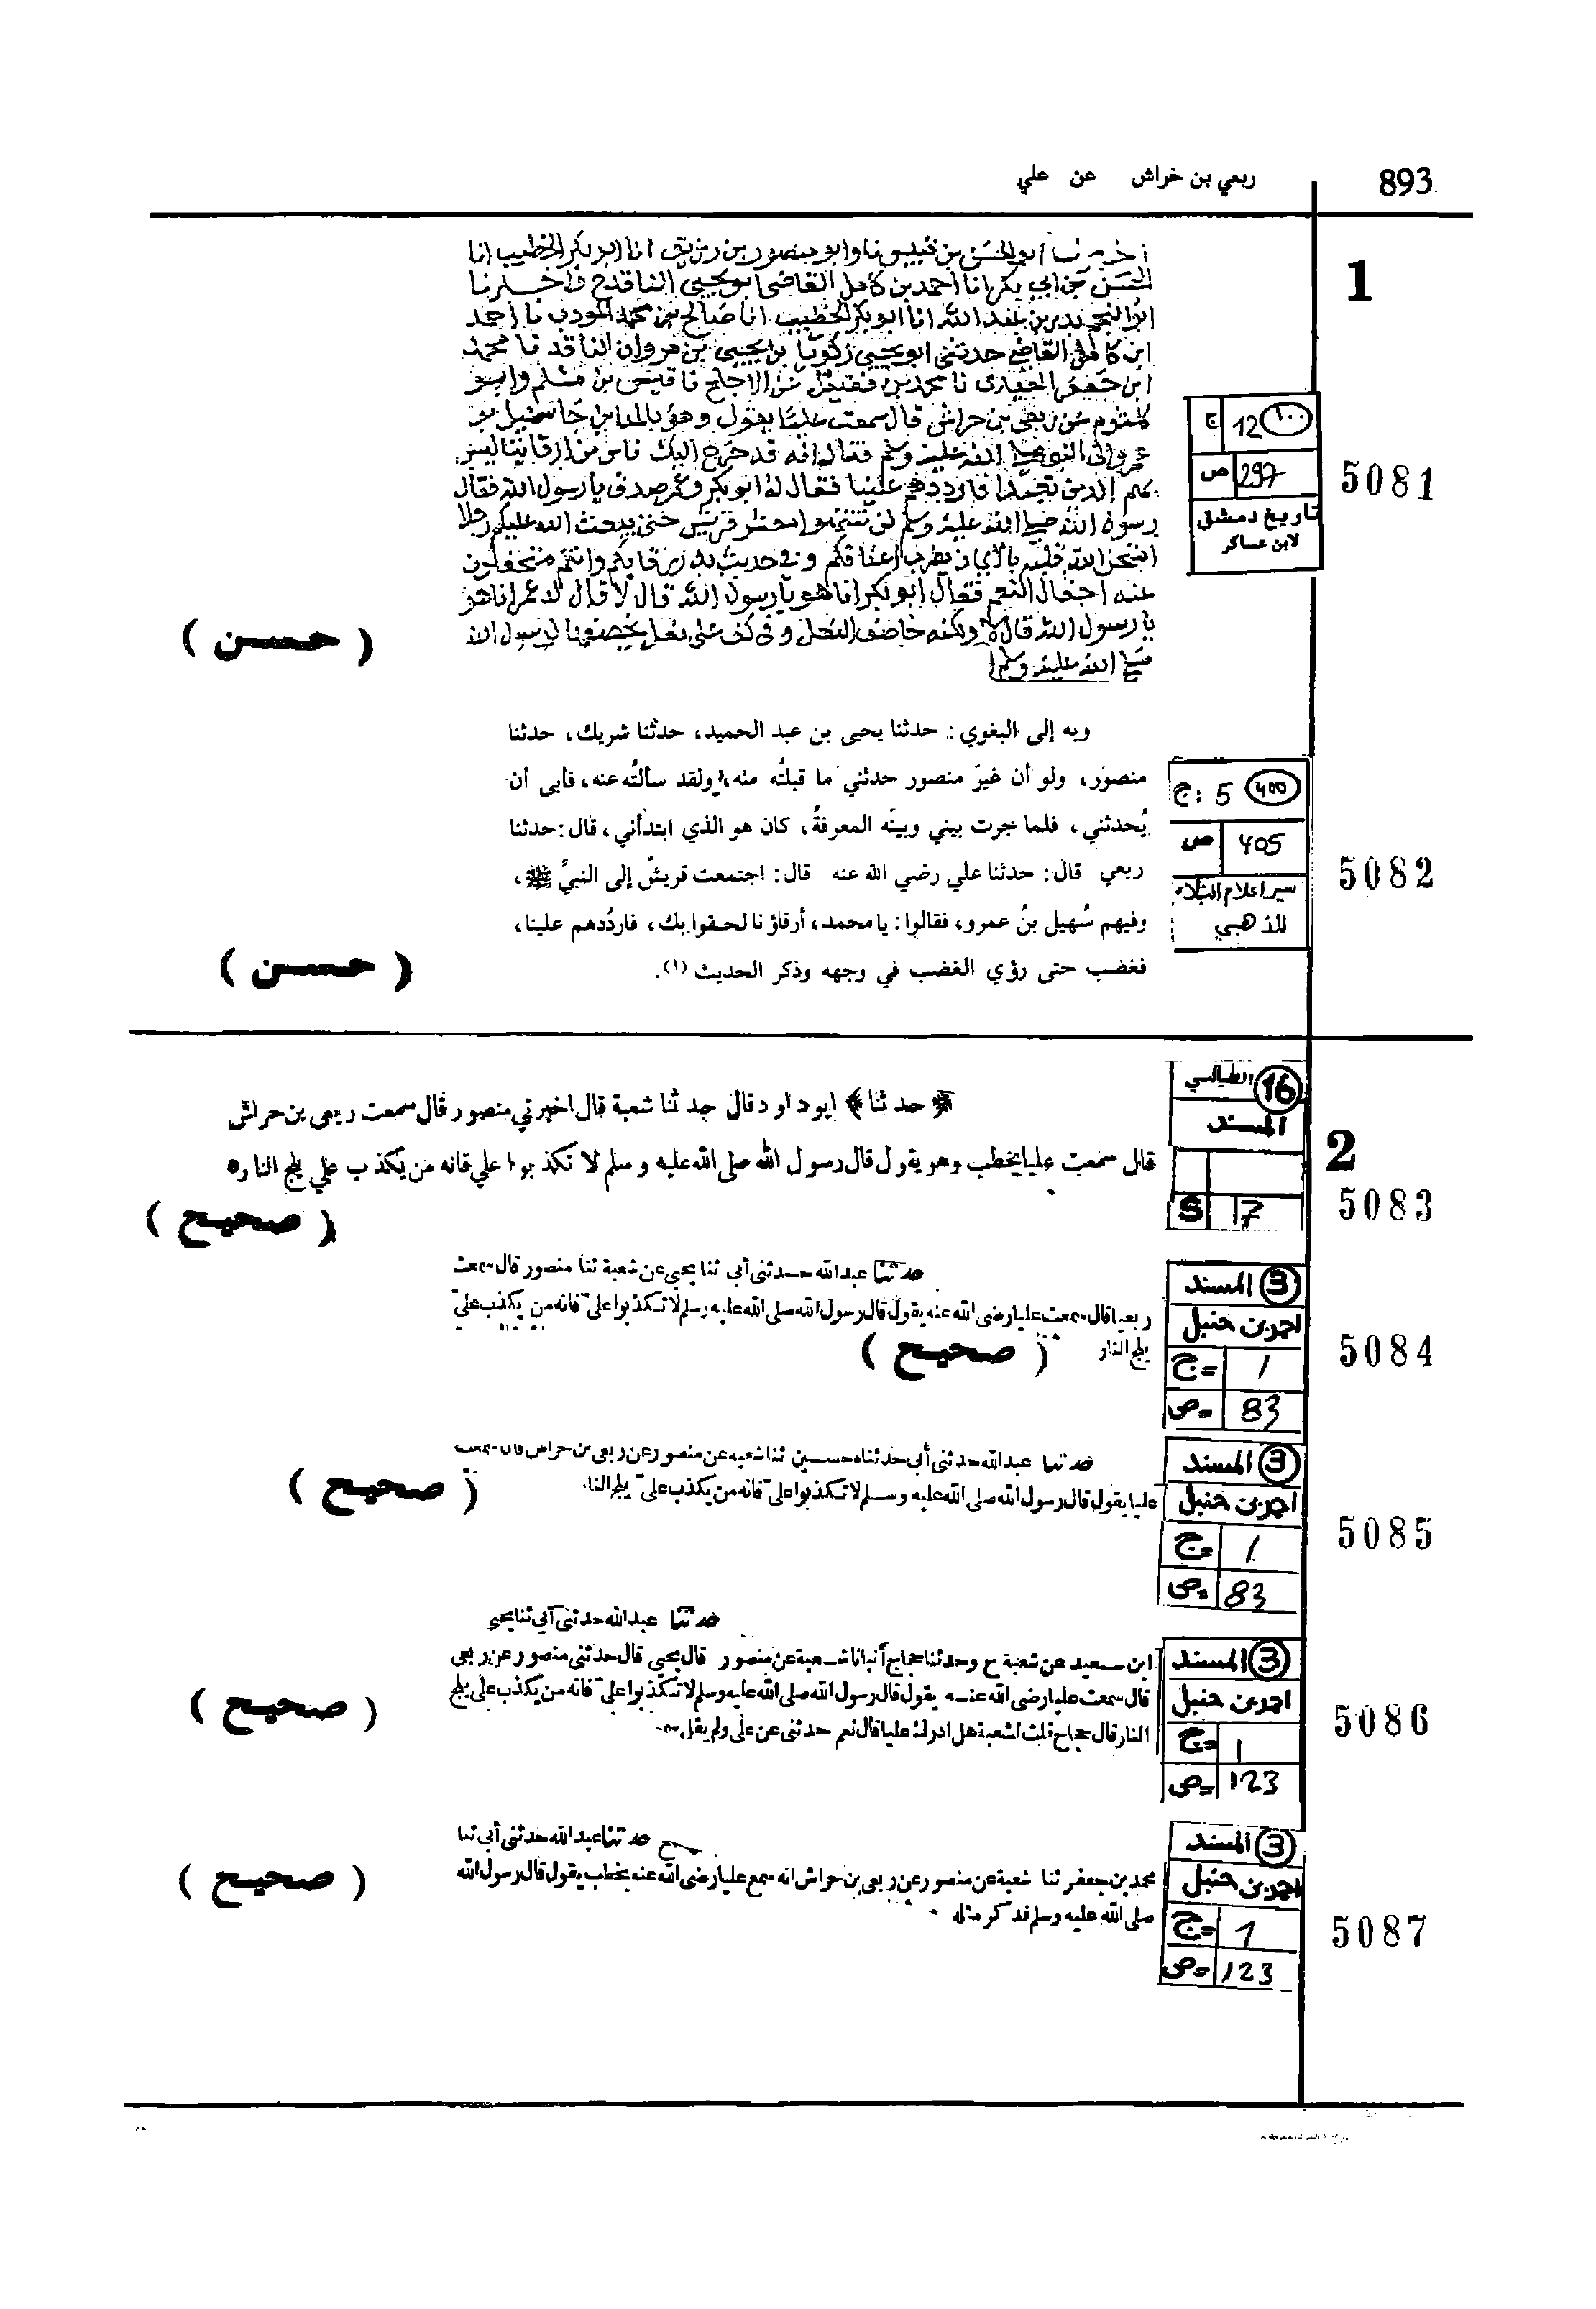 893
ربعي بن خراش عن علي
1
اخبرنا ابو الحسن بن قبيس نا وابو منصور بن زريق انا ابو بكر الخطيب انا
الحسن بن ابي بكر انا احمد بن كامل القاضي ابو يحيى الناقد ح واخبرنا
ابو النجم بدر بن عبد الله انا ابو بكر الخطيب انا صالح بن محمد المودب نا احمد
ابن كامل القاضي حدثني ابو يحيى زكريا بن يحيى بن مروان الناقد نا محمد
ابن جعفر الفيدي نا محمد بن فضيل عن الاجلح نا قيس بن مسلم وابو
كلثوم عن ربعي بن حراش قال سمعت عليا يقول وهو بالمداين جا سهيل بن
عمرو الى النبي صلى الله عليه وسلم فقال انه قد خرج اليك ناس من ارقاينا ليس
بهم الدين تعبدا فارددهم علينا فقال له ابو بكر وعمر صدق يا رسول الله فقال
رسول الله صلى الله عليه وسلم لن تنتهوا معشر قريش حتى يبعث الله عليكم رجلا
امتحن الله قلبه بالايمان يضرب اعناقكم وانتم متجفلون
عنه اجفال النعم فقال ابو بكر انا هو يا رسول الله قال لا قال له عمر انا هو
يا رسول الله قال لا ولكنه خاصف النعل وفي كف علي نعل يخصفها لرسول الله
صلى الله عليه وسلم
( حسن )
١٠٠ 12 ج
297 ص
تاريخ دمشق
لابن عساكر
5081
وبه إلى البغوي: حدثنا يحيى بن عبد الحميد، حدثنا شريك، حدثنا
منصور، ولو أن غيرَ منصور حدثني ما قبلتُه منه، ولقد سألتُه عنه، فأبى أن
يُحدثني، فلما جرت بيني وبينَه المعرفةُ، كان هو الذي ابتدأني، قال: حدثنا
ربعي قال: حدثنا علي رضي الله عنه قال: اجتمعت قريشٌ إلى النبيِّ ﷺ،
وفيهم سُهيل بنُ عمرو، فقالوا: يا محمد، أرقاؤنا لحقوا بك، فارْدُدهم علينا،
فغضب حتى رؤي الغضب في وجهه وذكر الحديث (١).
( حسن )
ج: 5
405 ص
سير اعلام النبلاء
للذهبي
5082
2
حدثنا ابو داود قال حدثنا شعبة قال اخبرني منصور قال سمعت ربعي بن حراش
قال سمعت عليا يخطب وهو يقول قال رسول الله صلى الله عليه وسلم لا تكذبوا علي فانه من يكذب علي يلج النار
( صحيح )
16 الطيالسي
المسند
17
5083
حدثنا عبد الله حدثنى أبى ثنا يحيى عن شعبة ثنا منصور قال سمعت
ربعيا قال سمعت عليا رضى الله عنه يقول قال رسول الله صلى الله عليه وسلم لا تكذبوا علىّ فانه من يكذب علىّ
يلج النار
( صحيح )
3 المسند
احمد بن حنبل
ج= 1
ص= 83
5084
حدثنا عبد الله حدثنى أبى حدثناه حسين ثنا شعبه عن منصور عن ربعى بن حراش قال سمعت
عليا يقول قال رسول الله صلى الله عليه وسلم لا تكذبوا علىّ فانه من يكذب علىّ يلج النار
( صحيح )
3 المسند
احمد بن حنبل
ج= 1
ص= 83
5085
حدثنا عبد الله حدثنى أبى ثنا يحيى
ابن سعيد عن شعبة ح وحدثنا حجاج أنبأنا شعبة عن منصور قال يحيى قال حدثنى منصور عن ربعى
قال سمعت عليا رضى الله عنه يقول قال رسول الله صلى الله عليه وسلم لا تكذبوا علىّ فانه من يكذب على يلج
النار قال حجاج قلت لشعبة هل ادرك عليا قال نعم حدثنى عن على ولم يقل سمع
( صحيح )
3 المسند
احمد بن حنبل
ج= 1
ص= 123
5086
حدثنا عبد الله حدثنى أبى ثنا
محمد بن جعفر ثنا شعبة عن منصور عن ربعى بن حراش انه سمع عليا رضى الله عنه يخطب يقول قال رسول الله
صلى الله عليه وسلم فذكر مثله
( صحيح )
3 المسند
احمد بن حنبل
ج= 1
ص= 123
5087